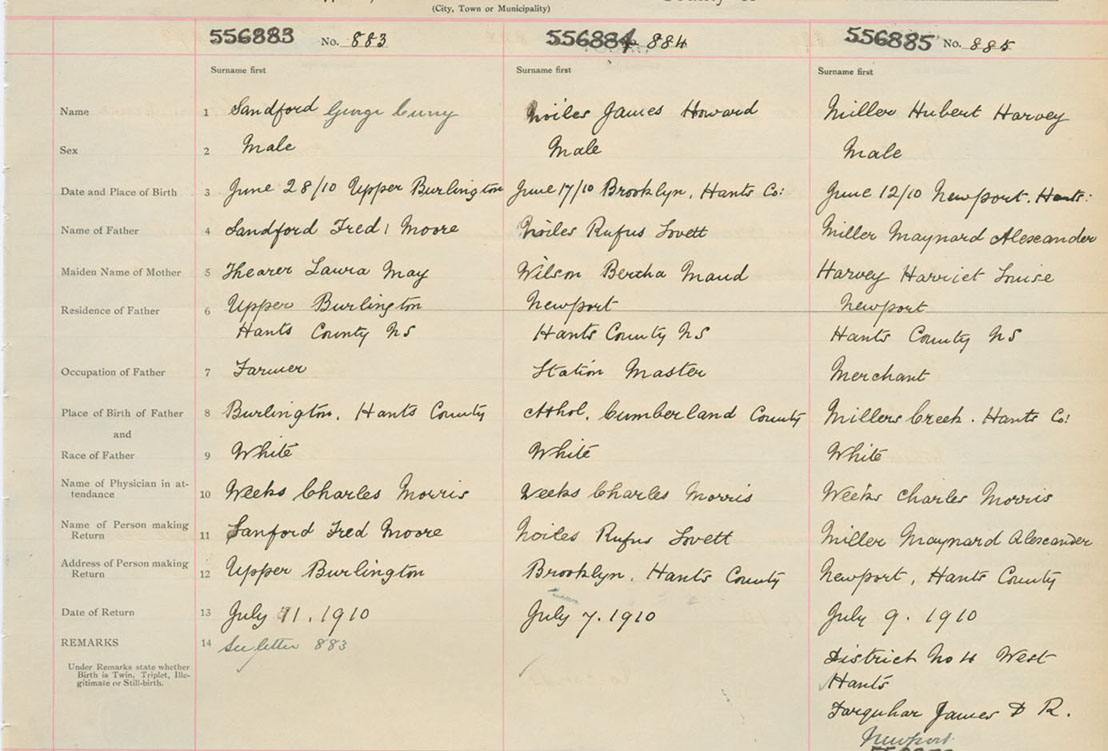 (City, Town or Municipality)
556883 No. 883 556884 884 556885 No. 885
Surname first Surname first Surname first
Name 1 Sandford George Curry Noiles James Howard Miller Hubert Harvey
Sex 2 Male Male Male
Date and Place of Birth 3 June 28/10 Upper Burlington June 17/10 Brooklyn, Hants Co: June 12/10 Newport. Hants:
Name of Father 4 Sandford Fred Moore Noiles Rufus Lovett Miller Maynard Alexander
Maiden Name of Mother 5 Shearer Laura May Wilson Bertha Maud Harvey Harriet Louise
Residence of Father 6 Upper Burlington Newport Newport
Hants County NS Hants County NS Hants County NS
Occupation of Father 7 Farmer Station Master Merchant
Place of Birth of Father 8 Burlington, Hants County Athol, Cumberland County Millers Creek. Hants Co:
and
Race of Father 9 White White White
Name of Physician in at-
tendance 10 Weeks Charles Morris Weeks Charles Morris Weeks Charles Morris
Name of Person making
Return 11 Sanford Fred Moore Noiles Rufus Lovett Miller Maynard Alexander
Address of Person making
Return 12 Upper Burlington Brooklyn, Hants County Newport, Hants County
Date of Return 13 July 11. 1910 July 7. 1910 July 9. 1910
REMARKS 14 See letter 883
Under Remarks state whether
Birth is Twin, Triplet, Ille-
gitimate or Still-birth.
District No 4 West
Hants
Farquhar James D R.
Newport